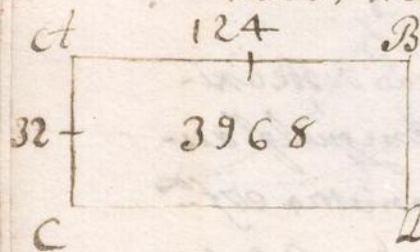 A 124 B
32 3968
C D